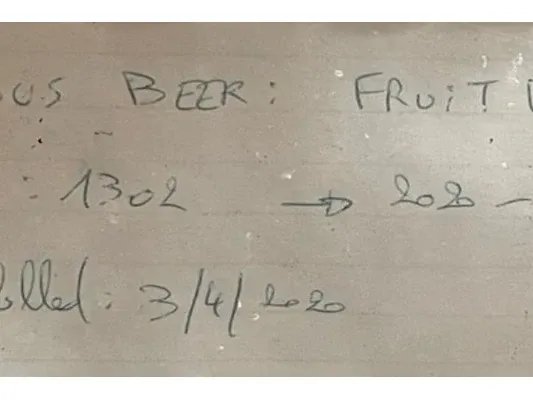 OUS BEER: FRUIT
: 1302 → 2020 -
olled: 3/4/2020